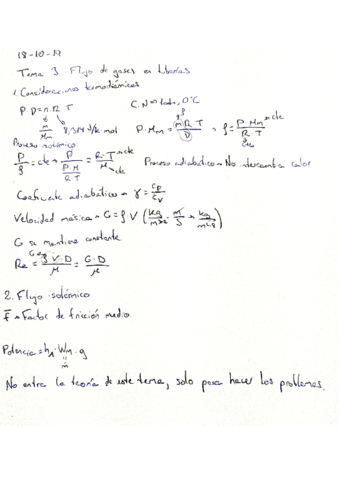 18-10-19
Tema 3. Flujo de gases en tuberías
1. Consideraciones termodinámicas
P·D=n.R.T C.N → 1 atm, 0ºC
m/Mm 8,314 J/k mol P·Mm = m·R·T/D → ρ = P·Mm→cte / R·T
Proceso isotérmico cte
P/ρ = cte → P / (P·M/R·T) = R·T→cte / M→cte Proceso adiabático → No intercambia calor
Coeficiente adiabático → γ = Cp/Cv
Velocidad másica → G = ρ·V (kg/m³ · m/s → kg/m²·s)
G se mantiene constante
Re = ρ·V·D/μ = G·D/μ
2. Flujo isotérmico
f̄ → Factor de fricción medio
Potencia = h·Wm·g
ṁ
No entra la teoría de este tema, solo para hacer los problemas.